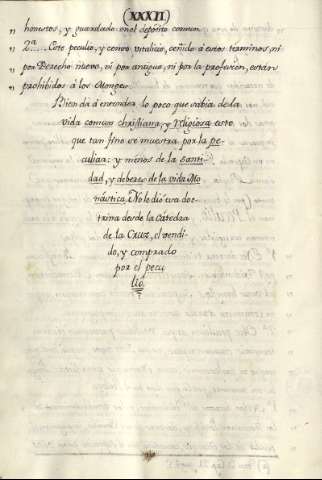 (XXXII)
" honestos, y guardado en el depósito comun.
" 2.ª ... Este peculio, y censo vitalicio, ceñido á estos terminos, ni
" por Derecho nuevo, ni por antiguo, ni por la profesion, estàn
" prohibidos á los Monges.
Bien da á entender lo poco que sabia de la
vida comun christiana, y religiosa este
que tan fino se muestra por la pe-
culiar: y menos de la santi-
dad, y deberes de la vida Mo
nástica. No le dió esa doc-
trina desde la Catedra
de la Cruz, el vendi-
do, y comprado
por el pecu
lio.